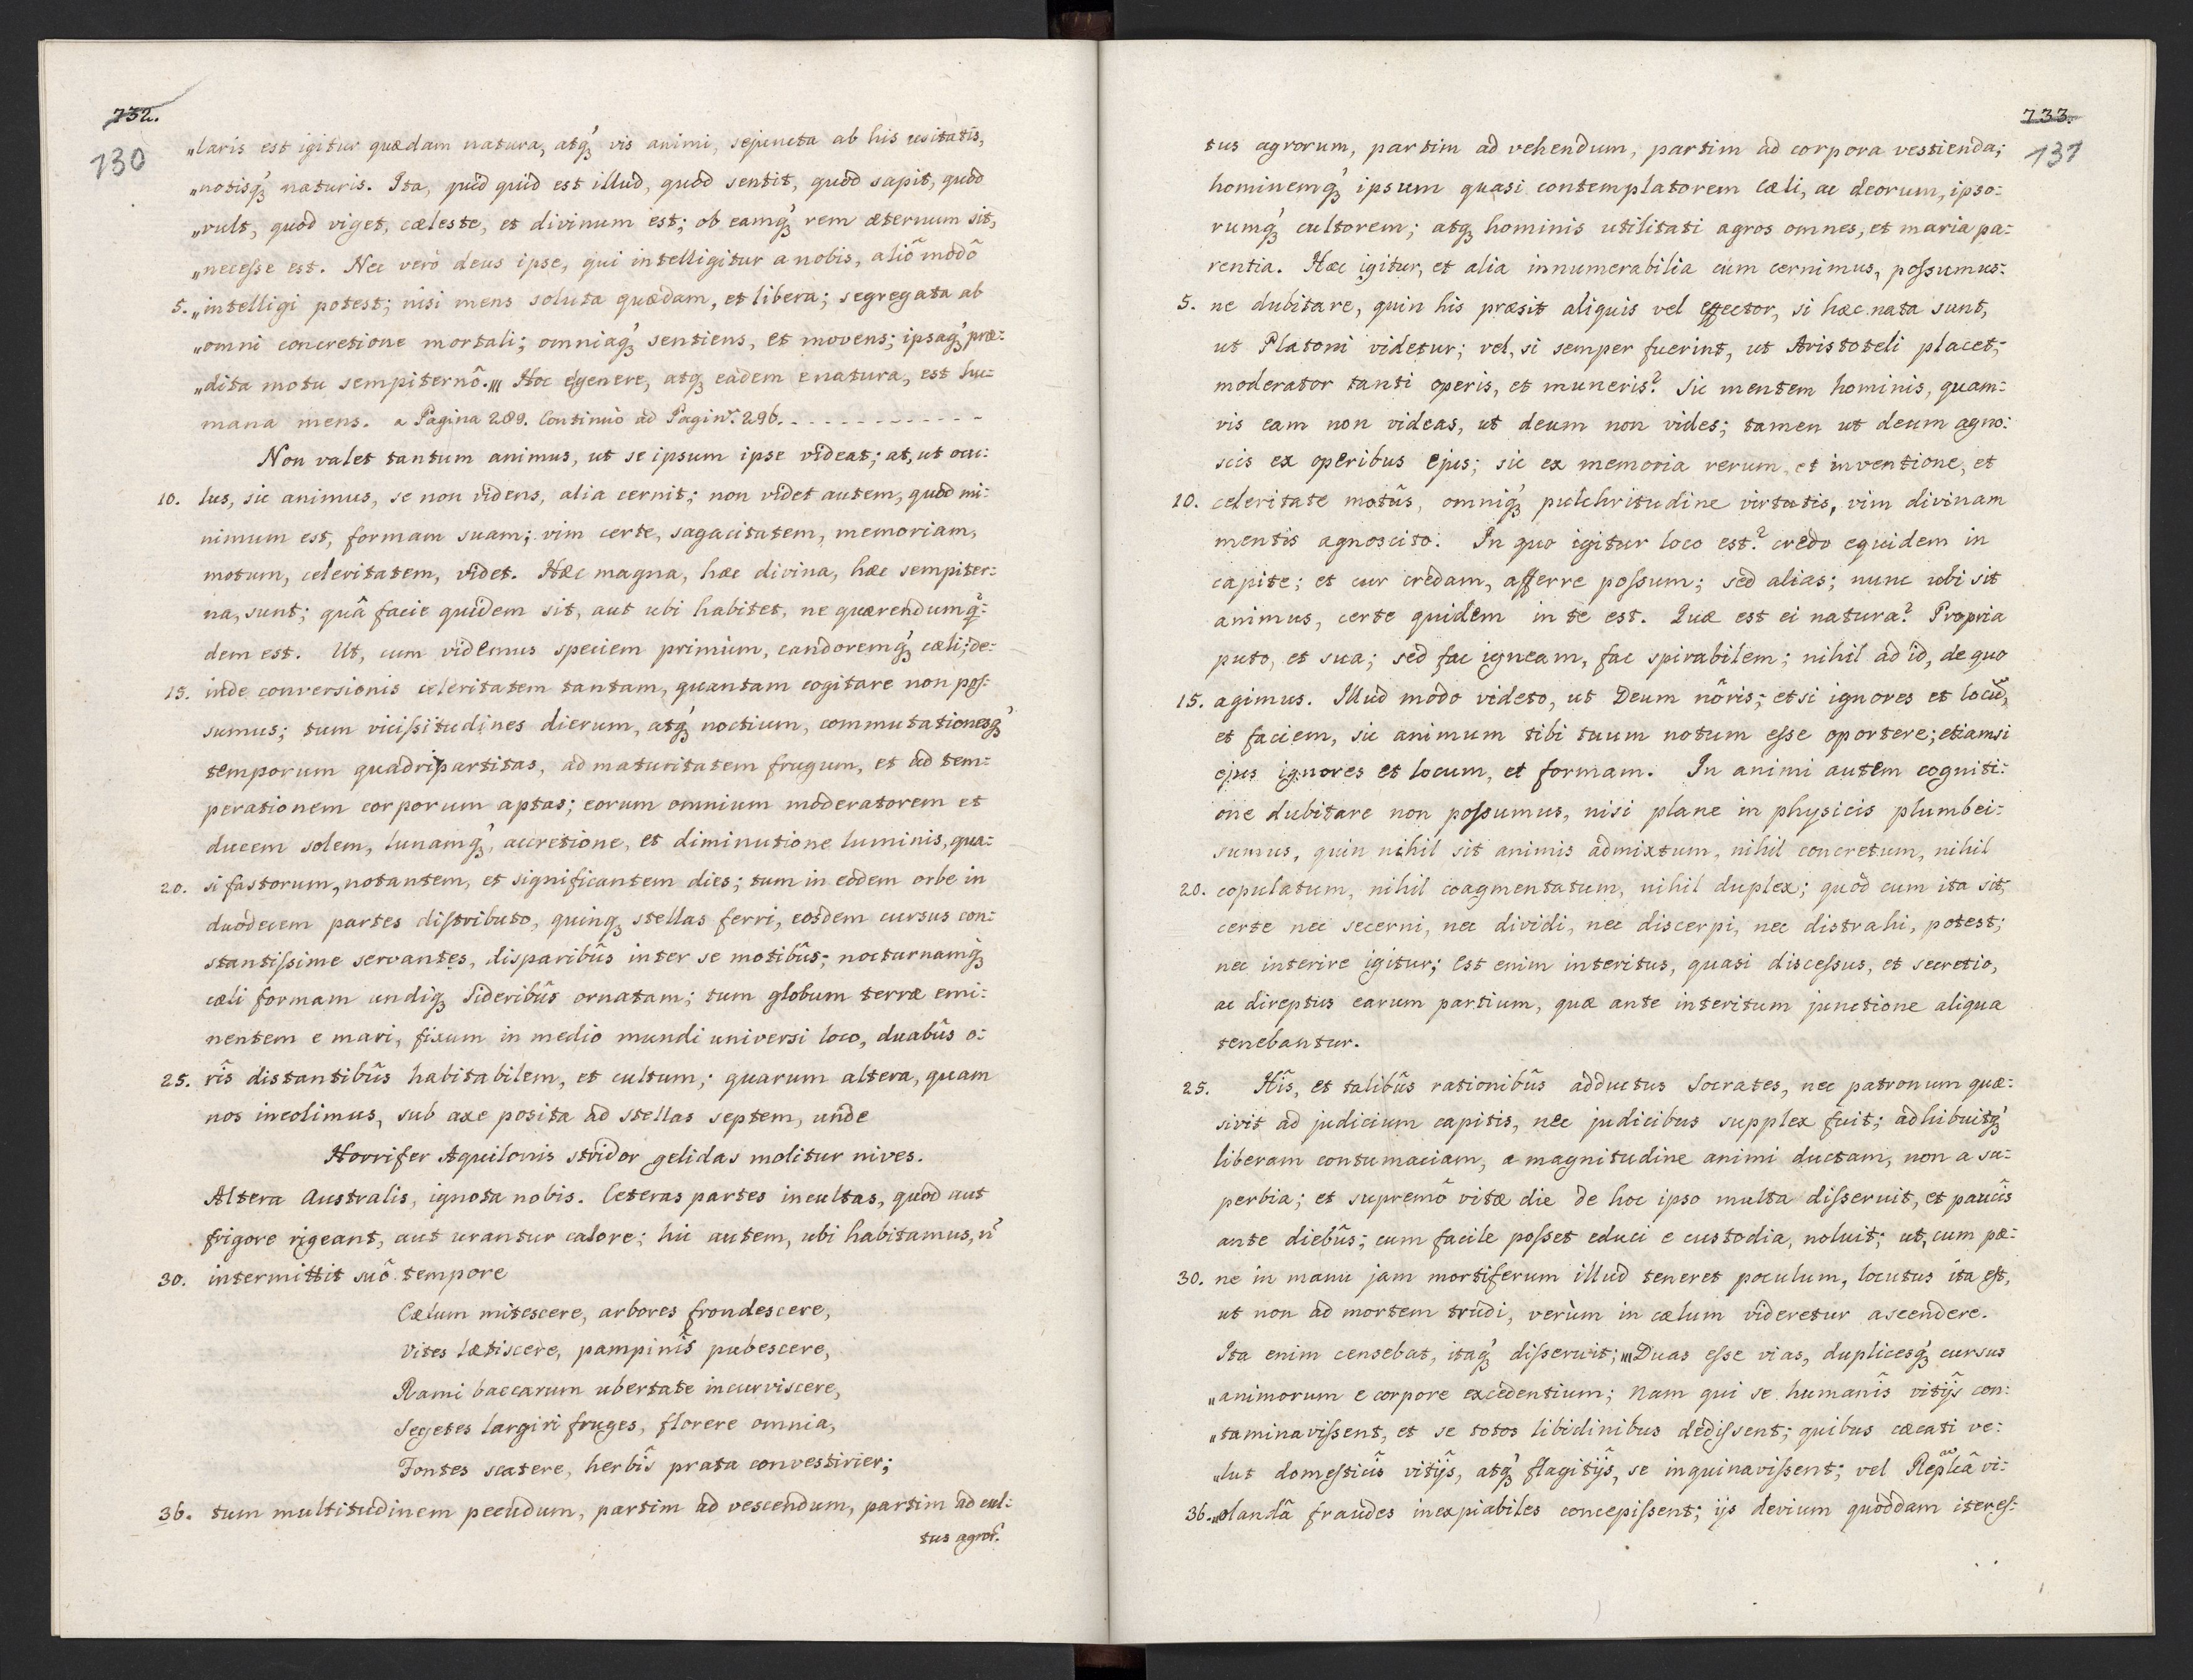 732.
130
„laris est igitur quædam natura, atq́ʒ vis animi, sejuncta ab his usitatis,
„notisq́ʒ naturis. Ita, quid quid est illud, quod sentit, quod sapit, quod
„vult, quod viget, cæleste, et divinum est; ob eamq́ʒ rem æternum sit,
„necesse est. Nec verò deus ipse, qui intelligitur a nobis, aliô modô
5. „intelligi potest; nisi mens soluta quædam, et libera; segregata ab
„omni concretione mortali; omniaq́ʒ sentiens, et movens; ipsaq́ʒ præ:
„dita motu sempiternô.„, Hoc e genere, atqʒ eadem e natura, est hu:
mana mens. a Pagina 289. Continuò ad Pagin: 296. - - - - - - - - - - - -
Non valet tantum animus, ut se ipsum ipse videat; at, ut ocu:
10. lus, sic animus, se non videns, alia cernit; non videt autem, quod mi:
nimum est, formam suam; vim certe, sagacitatem, memoriam,
motum, celeritatem, videt. Hæc magna, hæc divina, hæc sempiter:
na, sunt; quâ facie quidem sit, aut ubi habitet, ne quærendum q̃:
dem est. Ut, cum videmus speciem primùm, candoremq́ʒ cæli; de:
15. inde conversionis celeritatem tantam, quantam cogitare non pos:
sumus; tum vicissitudines dierum, atq́ʒ noctium, commutationesq́ʒ
temporum quadripartitas, ad maturitatem frugum, et ad tem:
perationem corporum aptas; eorum omnium moderatorem et
ducem solem, lunamq́ʒ, accretione, et diminutione luminis, qua:
20. si fastorum, notantem, et significantem dies; tum in eodem orbe in
duodecem partes distributo, quinqʒ stellas ferri, eosdem cursus con:
stantissime servantes, disparibûs inter se motibûs; nocturnamq́ʒ
cæli formam undiqʒ Sideribûs ornatam; tum globum terræ emi:
nentem e mari, fixum in medio mundi universi loco, duabûs o:
25. rîs distantibûs habitabilem, et cultum; quarum altera, quam
nos incolimus, sub axe posita ad stellas septem, unde
Horrifer Aquilonis stridor gelidas molitur nives.
Altera Australis, ignota nobis. Ceteras partes incultas, quod aut
frigore rigeant, aut urantur calore; hic autem, ubi habitamus, ñ
30. intermittit suô tempore
Cælum mitescere, arbores frondescere,
Vites lætiscere, pampinîs pubescere,
Rami baccarum ubertate incurviscere,
Segetes largiri fruges, florere omnia,
Fontes scatere, herbîs prata convestirier;
36. tum multitudinem pecudum, partim ad vescendum, partim ad cul:
tus agror̃.
733.
131
tus agrorum, partim ad vehendum, partim ad corpora vestienda;
hominemq́ʒ ipsum quasi contemplatorem cæli, ac deorum, ipso:
rumq́ʒ cultorem; atqʒ hominis utilitati agros omnes, et maria pa:
rentia. Hæc igitur, et alia innumerabilia cùm cernimus, possumus:
5. ne dubitare, quin his præsit aliquis vel effector, si hæc nata sunt,
ut Platoni videtur; vel, si semper fuerint, ut Aristoteli placet,
moderator tanti operis, et muneris? Sic mentem hominis, quam:
vis eam non videas, ut deum non vides; tamen ut deum agno:
scis ex operibus ejus; sic ex memoria rerum, et inventione, et
10. celeritate motûs, omniq́ʒ pulchritudine virtutis, vim divinam
mentis agnoscito. In quo igitur loco est? credo equidem in
capite; et cur credam, afferre possum; sed alias; nunc ubi sit
animus, certe quidem in te est. Quæ est ei natura? Propria
puto, et sua; sed fac igneam, fac spirabilem; nihil ad id, de quo
15. agimus. Illud modo videto, ut Deum nôris; etsi ignores et locũ,
et faciem, sic animum tibi tuum notum esse oportere; etiamsi
ejus ignores et locum, et formam. In animi autem cogniti:
one dubitare non possumus, nisi plane in physicis plumbei:
sumus, quin nihil sit animis admixtum, nihil concretum, nihil
20. copulatum, nihil coagmentatum, nihil duplex; quod cum ita sit,
certe nec secerni, nec dividi, nec discerpi, nec distrahi, potest;
nec interire igitur; est enim interitus, quasi discessus, et secretio,
ac direptus earum partium, quæ ante interitum junctione aliqua
tenebantur.
25. Hîs, et talibûs rationibûs adductus Socrates, nec patronum quæ:
sivit ad judicium capitis, nec judicibus supplex fuit; adhibuitq́ʒ
liberam contumaciam, a magnitudine animi ductam, non a su:
perbia; et supremô vitæ die de hoc ipso multa disseruit, et paucîs
ante diebûs; cum facile posset educi e custodia, noluit; ut, cum pæ:
30. ne in manu jam mortiferum illud teneret poculum, locutus ita est,
ut non ad mortem trudi, verùm in cælum videretur ascendere.
Ita enim censebat, itaq́ʒ disseruit; „,Duas esse vias, duplicesq́ʒ cursus
„animorum e corpore excedentium; Nam qui se humanîs vitijs con:
„taminavissent, et se totos libidinibus dedissent; quibus cæcati ve:
„lut domesticîs vitijs, atq́ʒ flagitijs, se inquinavissent; vel Repl̃câ vi:
36. „olandâ fraudes inexpiabiles concepissent; ijs devium quoddam iter es: